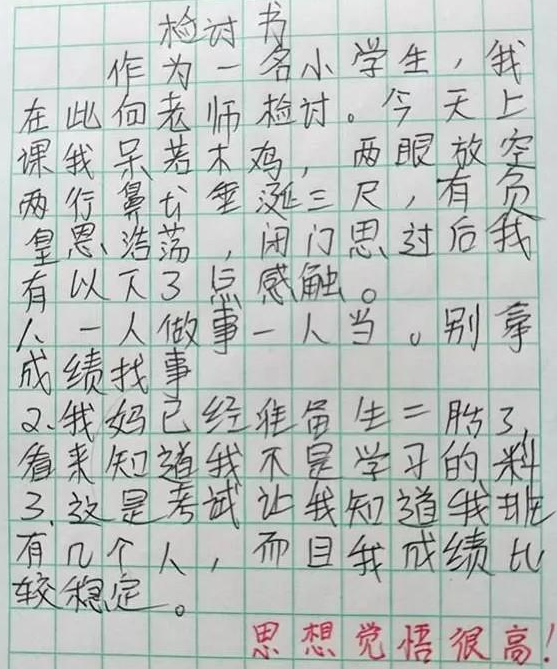 检讨书
作为一名小学生，我
在此向老师检讨。今天上
课我呆若木鸡，两眼放空
两行鼻长垂涎三尺，有负
皇恩浩荡，闭门思过后我
有以下3点感触。
1、一人做事一人当。别拿
成绩找事
2、我妈已经准备生二胎了，
看来知道我不是学习的料
3、这是考试让我知道我班
有几个人，而且我成绩比
较稳定。
思想觉悟很高！